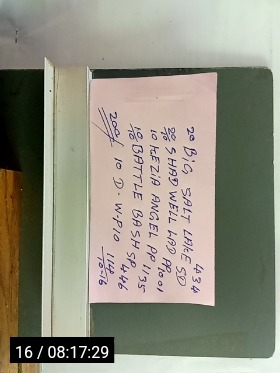 20 BIG SALT LAKE SD 434
20/20 SHADWELL LAD PP 1001
10 KEZIA ANGEL PP 1135
10/10 BATTLE BASH SP 446
200 10 D.W.P10 114
10-16
16 / 08:17:29